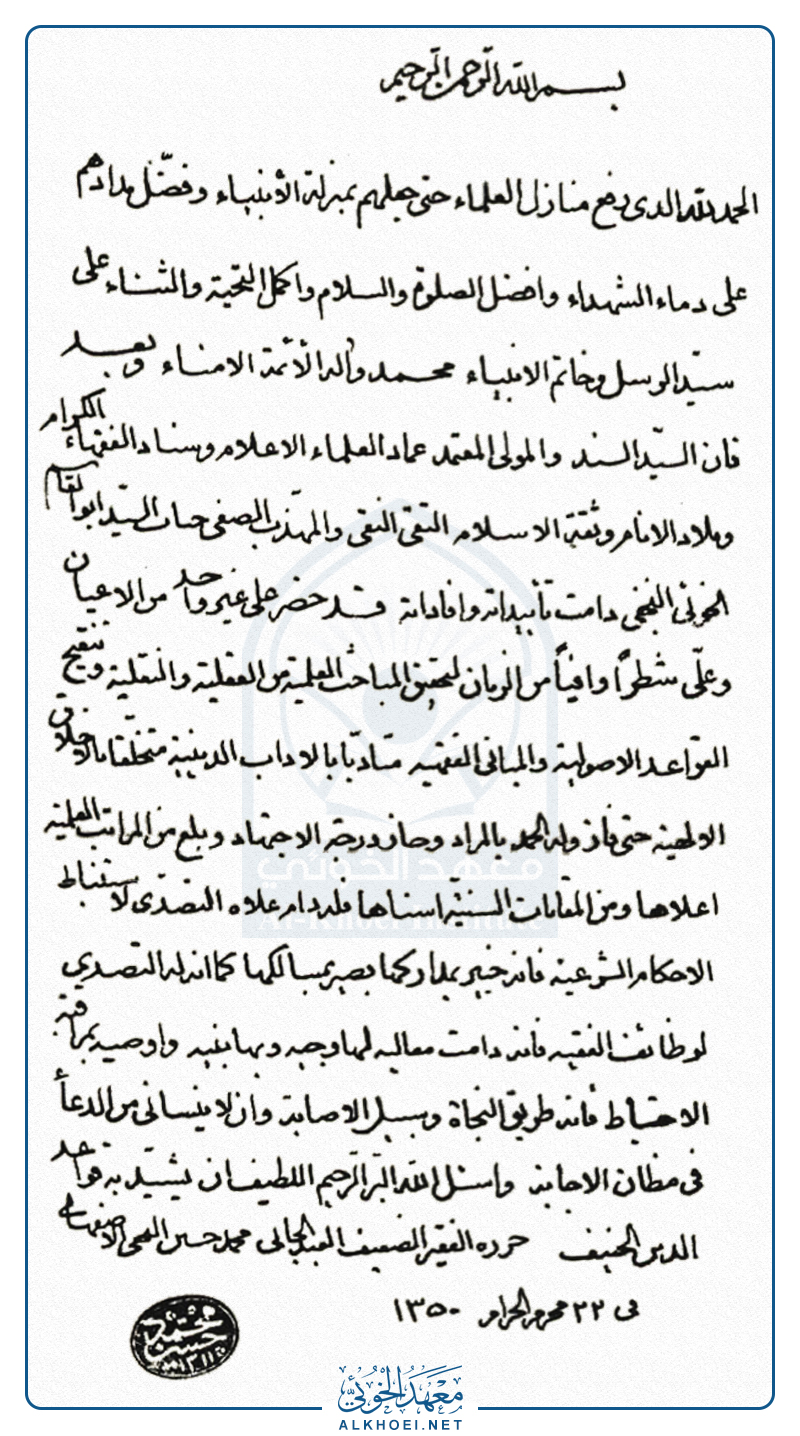 بسم الله الرحمن الرحيم
الحمد لله الذي رفع منازل العلماء حتى جعلهم بمنزلة الأنبياء وفضّل مدادهم
على دماء الشهداء وافضل الصلوة والسلام واكمل التحية والثناء على
سيّد الرسل وخاتم الانبياء محمد وآله الأئمة الامناء وبعد
فان السيّد السند والمولى المعتمد عماد العلماء الاعلام وسناد الفقهاء الكرام
وملاذ الانام وثقة الاسلام التقي النقي والمهذّب الصفي جناب السيّد ابوالقاسم
الخوئي النجفي دامت تأييداته وافاداته قد حضر على غير واحد من الاعيان
وعلّى شطراً وافياً من الزمان لتحقيق المباحث العلمية من العقلية والنقلية وتنقيح
القواعد الاصولية والمباني الفقهية متأدّبا بالاداب الدينية متخلّقا بالاخلاق
الالهية حتى فاز وله الحمد بالمراد وحاز درجة الاجتهاد وبلغ من المراتب العلمية
اعلاها ومن المقامات السنيّة اسناها فله دام علاه التصدّي لاستنباط
الاحكام الشرعية فانه خبير بمداركها بصير بمسالكها كما ان له التصدي
لوظائف الفقيه فانه دامت معاليه لها وجيه وبها نبيه واوصيه بمراقبة
الاحتياط فأنه طريق النجاة وسبيل الاصابة وان لا ينساني من الدعأ
في مظان الاجابة واسئل الله البرّ الرّحيم اللطيف ان يشيّد به قواعد
الدين الحنيف حرره الفقير الضعيف العبد الجاني محمد حسين النجفي الاصفهاني
في ٢٢ محرم الحرام ١٣٥٠
محمد حسين
معهد الخوئي
Al-Khoei Institute
معهد الخوئي
ALKHOEI.NET